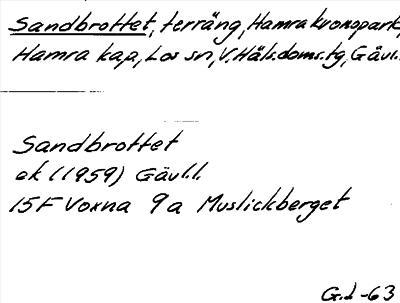 Sandbrottet, terräng, Hamra kronopark,
Hamra kap, Los sn, V. Häls. doms. tg, Gävl.
Sandbrottet
ek (1959) Gäv.l.l.
15F Voxna 9a Muslickberget
G.J-63